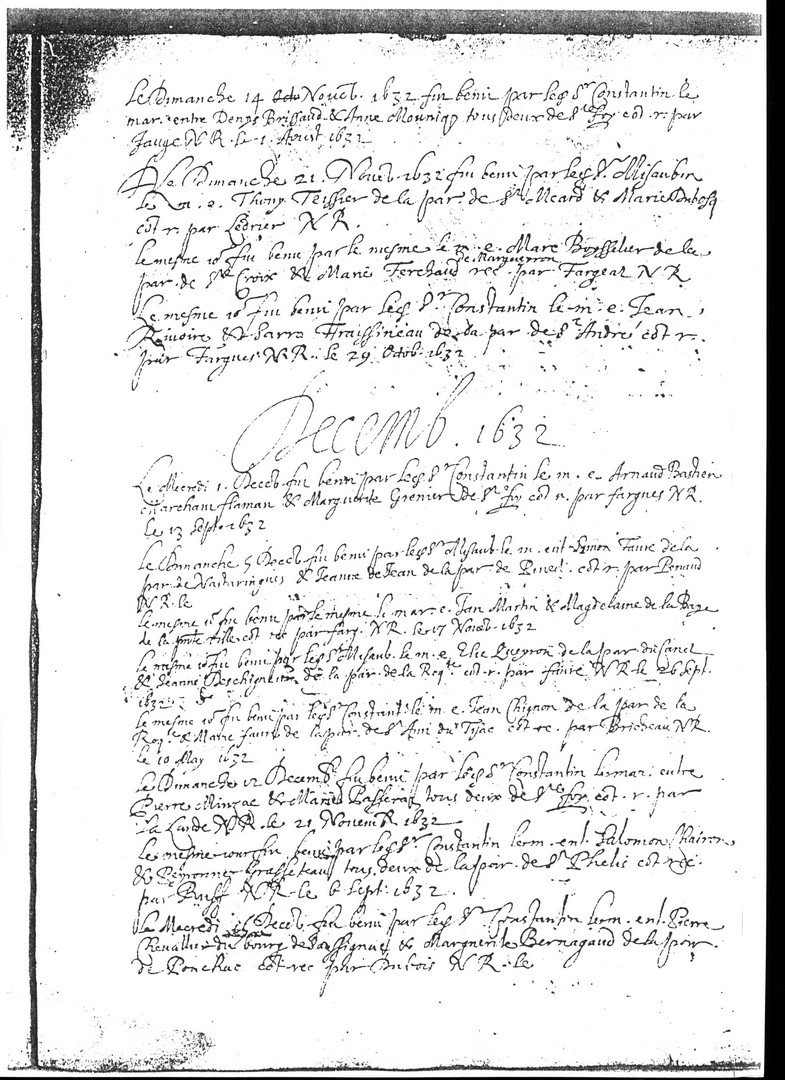 Le Dimanche 14 Octo Novēb. 1632 fu beni par led sr Constantin le
mar. entre Denys Brissaud & Anne Mouniq tous deux de Ste foy est r. par
Jauge N R. le 1. Aoust 1632
Le Dimanche 21. Novēb. 1632 fu beni par led sr. Misaubin
le m. e. Thony Teissier de la par de St Meard & Marie Dubosq
est r. par Ledrier N R.
le mesme jor fu beni par le mesme le m. e. Marc Boysselier de la
de Margueron
par. de Ste Croix & Marie Ferchaud rec. par Fargeas N R
Le mesme jor fu beni par led sr Constantin le m. e. Jean
Rivoire & Sarra Fraissineau de la par de St André est r.
par Fargues N R. le 29 Octob. 1632
Decemb. 1632
Le Mecredi 1. Decēb. fu beni par led sr Constantin le m. e. Arnaud Bastien
marchant flaman & Marguerite Grenier de Ste foy est r. par fargues N R.
le 13 Sept. 1632
Le Dimanche 5 Decēb. fu beni par led sr Misaub. le m. ent. Simon Faure de la
par de & Jeanne de Jean de la par. de Pineu. est r. par Renaud
N R. le
le mesme jor fu beni par le mesme le mar. e. Jan Martin & Magdelaine de la
de la pnte ville est rec par farg. N R. le 17 Novēb. 1632
le mesme jor fu beni par led sr Misaub. le m. e. Elie Queyron de la par du
& Jeanne Deschigneux de la par. de la Roqte est r. par faure N R. le 26 Sept.
1632.
Le mesme jor fu beni par led sr Constant. le m. e. Jean Chignon de la par de la
Roqte & Marie faure de la par. de St Avi du Tisac est re. par Bricheau N R.
le 10 May 1632
Le Dimanche 12 Decemb. fu beni par led sr Constantin le mar. entre
Pierre Minzac & Marie Passerau tous deux de Ste foy est. r. par
La Lande N R. le 21 Novemb. 1632
Le mesme jour fu beni par led sr Constantin le m. ent. Salomon
& Peyronne Grasseteau tous deux de la par. de St Phelis est rec.
par Ruff N R. le 6 Sept. 1632.
Le Mecredi Decēb. fu beni par led sr Constantin le m. ent. Pierre
Chevallier du bourg de & Marguerite Bernagaud de la par.
de Ponchac est rec par Dubois N R. le